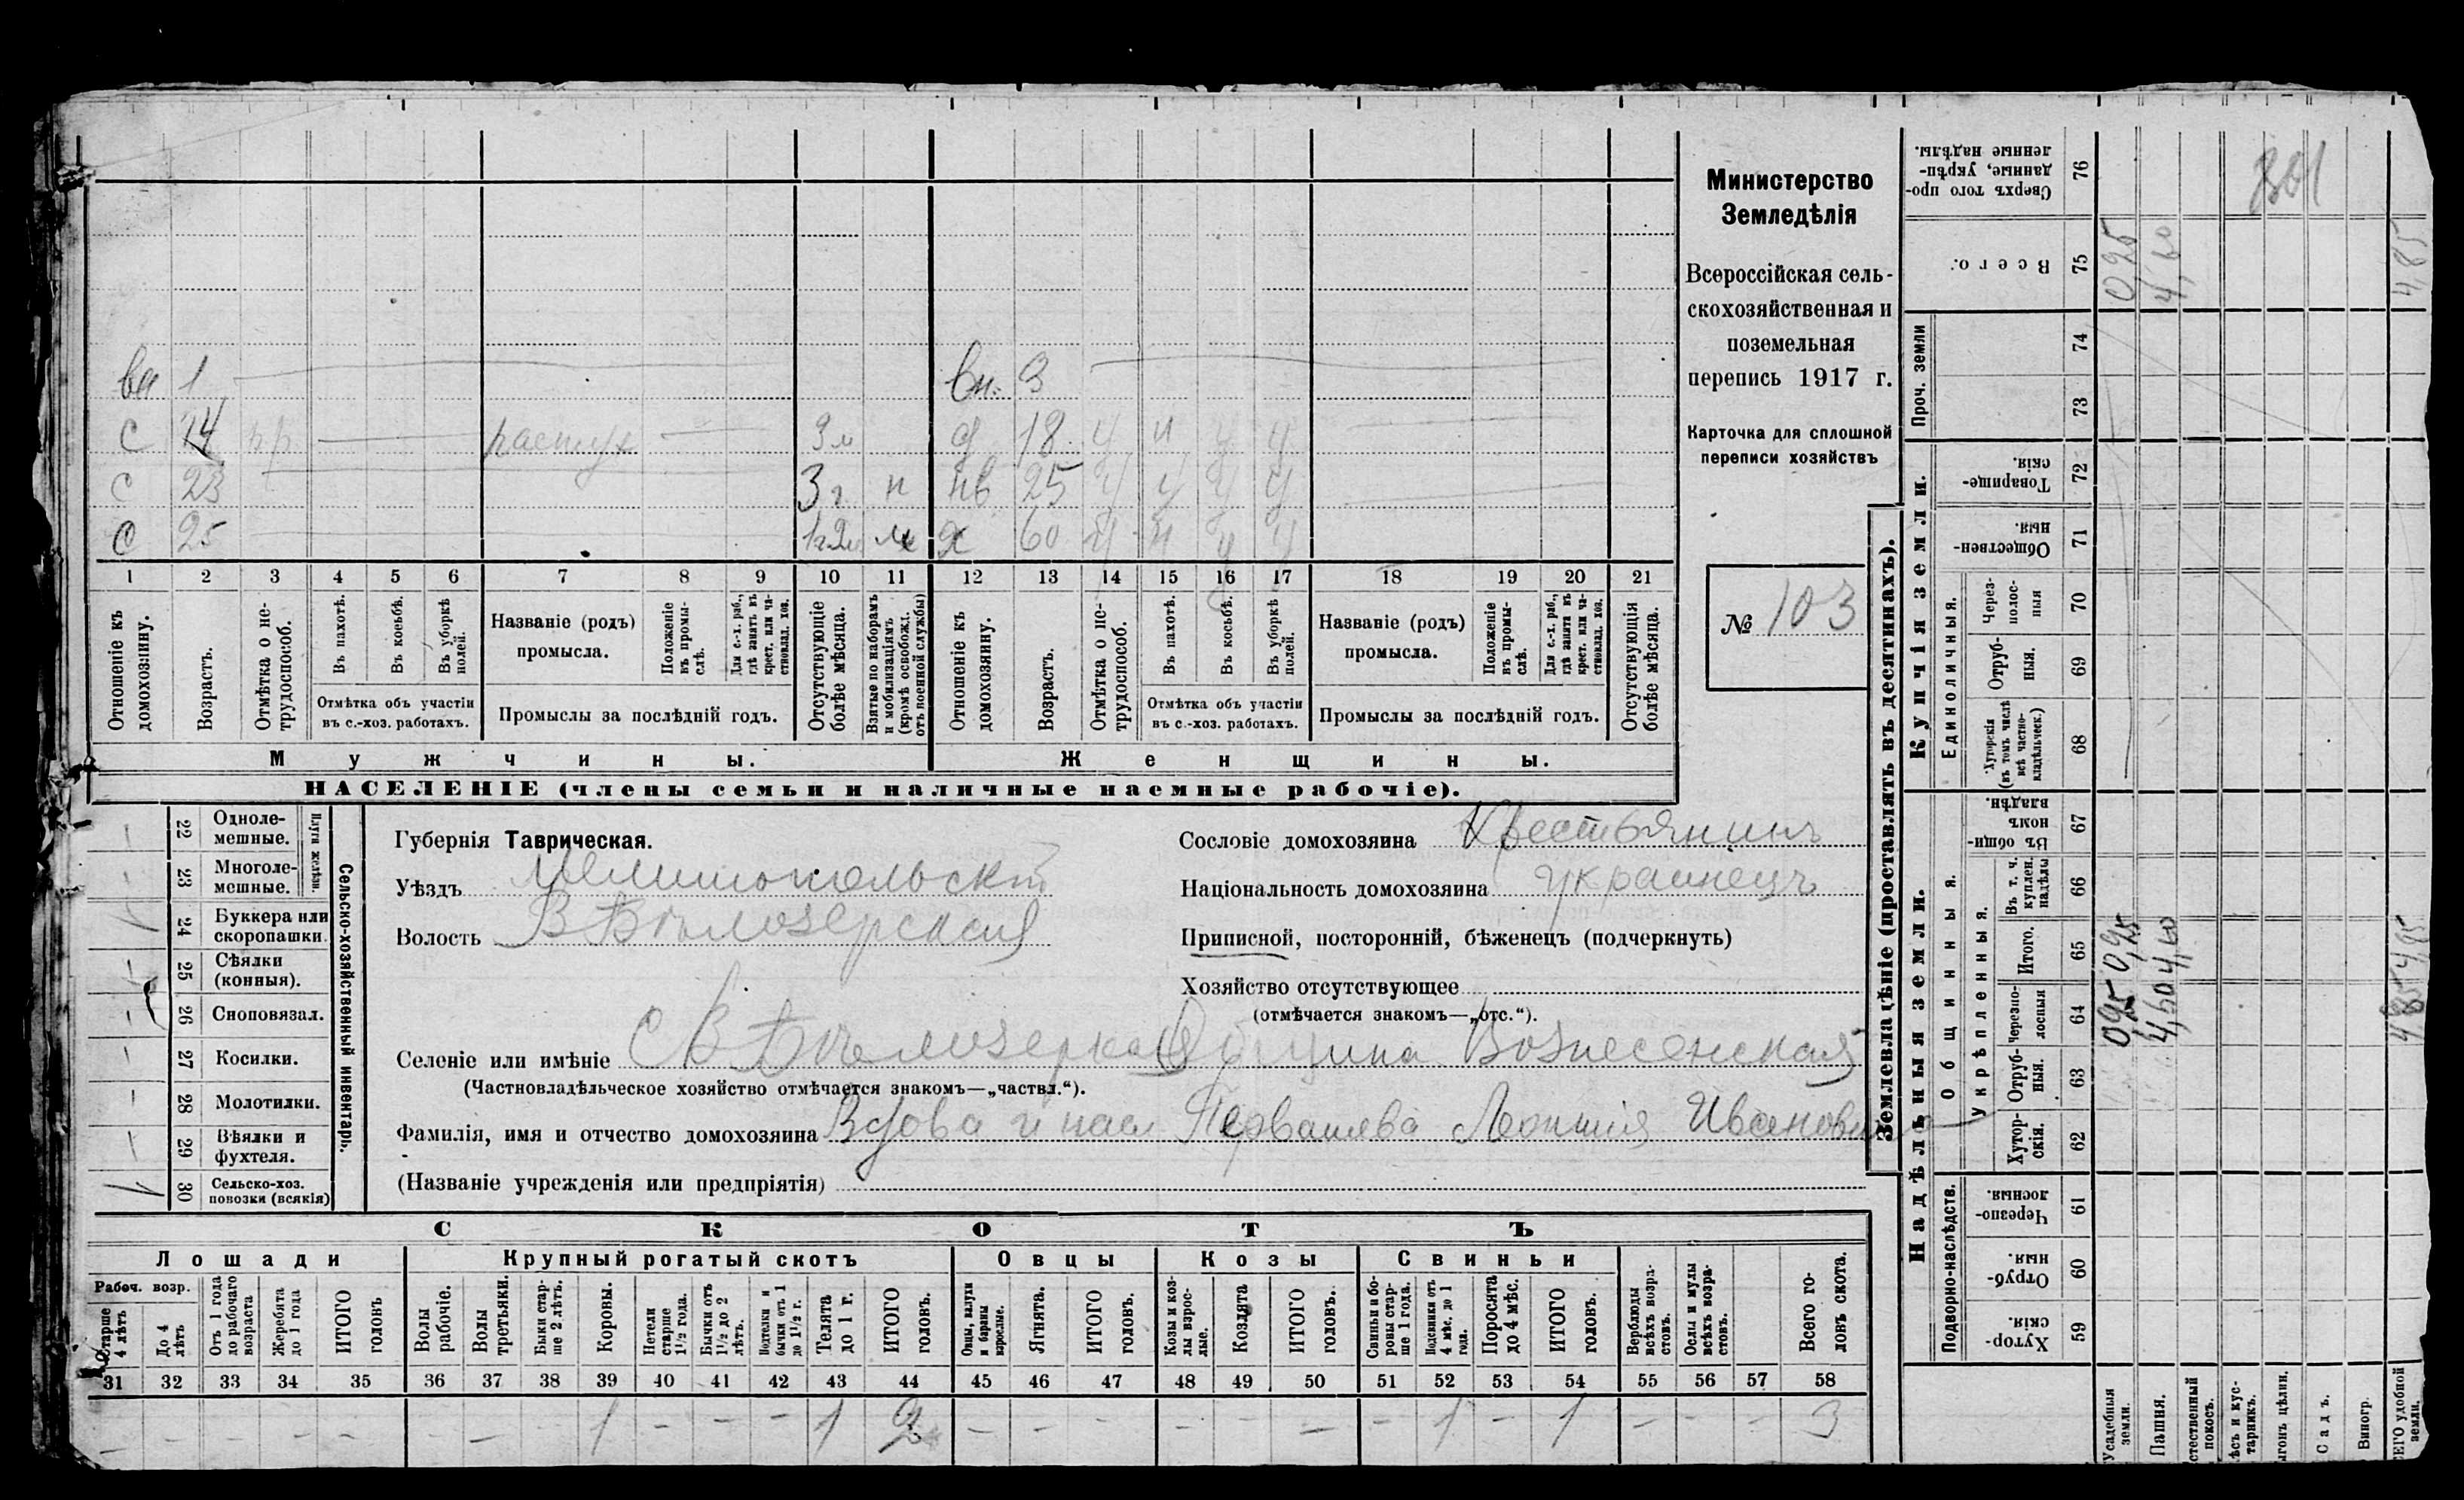 Министерство
Земледѣлія
Всероссійская сель-
скохозяйственная и
поземельная
перепись 1917 г.
Карточка для сплошной
переписи хозяйствъ
№ 103
ва 1
с 14 пастух 9 м
с 23 3 г. н
с 25
вн. 3
д 18 ч ч ч ч
нв 25 ч ч ч ч
х 60 ч ч ч ч
1 2 3 4 5 6 7 8 9 10 11 12 13 14 15 16 17 18 19 20 21
Отношеніе къ домохозяину.
Возрастъ.
Отмѣтка о не-трудоспособ.
Въ пахотѣ.
Въ косьбѣ.
Въ уборкѣ полей.
Отмѣтка объ участіи въ с.-хоз. работахъ.
Названіе (родъ) промысла.
Положеніе въ промы-слѣ.
Для с.-х. раб., гдѣ занятъ въ крест. или ча-стновлад. хоз.
Промыслы за послѣдній годъ.
Отсутствующіе болѣе мѣсяца.
Взятые по наборамъ и мобилизаціямъ (кромѣ освобожд. отъ военной службы)
Отношеніе къ домохозяину.
Возрастъ.
Отмѣтка о не-трудоспособ.
Въ пахотѣ.
Въ косьбѣ.
Въ уборкѣ полей.
Отмѣтка объ участіи въ с.-хоз. работахъ.
Названіе (родъ) промысла.
Положеніе въ промы-слѣ.
Для с.-х. раб., гдѣ занята въ крест. или ча-стновлад. хоз.
Промыслы за послѣдній годъ.
Отсутствующія болѣе мѣсяца.
Мужчины. Женщины.
НАСЕЛЕНІЕ (члены семьи и наличные наемные рабочіе).
22 Одноле-мешные.
23 Многоле-мешные.
Плуги желѣзн.
24 Буккера или скоропашки.
25 Сѣялки (конныя).
26 Сноповязал.
27 Косилки.
28 Молотилки.
29 Вѣялки и фухтеля.
30 Сельско-хоз. повозки (всякія)
Сельско-хозяйственный инвентарь.
Губернія Таврическая.
Уѣздъ Мелитопольскій
Волость В Бѣлозерская
Сословіе домохозяина Крестьянинъ
Національность домохозяина украинецъ
Приписной, посторонній, бѣженецъ (подчеркнуть)
Хозяйство отсутствующее
(отмѣчается знакомъ—„отс.“).
Селеніе или имѣніе С В Бѣлозерка Община Вознесенская
(Частновладѣльческое хозяйство отмѣчается знакомъ—„частвл.“).
Фамилія, имя и отчество домохозяина Вдова и насл
(Названіе учрежденія или предпріятія)
СКОТЪ
Лошади Крупный рогатый скотъ Овцы Козы Свиньи
Рабоч. возр.
Старше 4 лѣтъ
До 4 лѣтъ
Отъ 1 года до рабочаго возраста
Жеребята до 1 года
ИТОГО головъ
Волы рабочіе.
Волы третьяки.
Быки стар-ше 2 лѣтъ.
Коровы.
Нетели старше 1½ года.
Бычки отъ 1½ до 2 лѣтъ.
Подтелки и бычки отъ 1 до 1½ г.
Телята до 1 г.
ИТОГО головъ.
Овцы, валухи и бараны взрослые.
Ягнята.
ИТОГО головъ.
Козы и коз-лы взрос-лые.
Козлята
ИТОГО головъ.
Свиньи и бо-ровы стар-ше 1 года.
Подсвинки отъ 4 мѣс. до 1 года.
Поросята до 4 мѣс.
ИТОГО головъ.
Верблюды всѣхъ возра-стовъ.
Ослы и мулы всѣхъ возра-стовъ.
Всего го-ловъ скота.
31 32 33 34 35 36 37 38 39 40 41 42 43 44 45 46 47 48 49 50 51 52 53 54 55 56 57 58
– – – – – – – – 1 – – – 1 2 – – – – – – – 1 – 1 – – – 3
Землевладѣніе (проставлять въ десятинахъ).
76 Сверхъ того про-данные, укрѣп-ленные надѣлы.
75 Всего. 0,25 4,60 4,85
74
73
Проч. земли
Купчія земли.
72 Товарище-скія.
71 Обществен-ныя.
Единоличныя.
70 Через-полос-ныя
69 Отруб-ныя.
68 Хуторскія (въ томъ числѣ всѣ частно-владѣльческ.)
Надѣльныя земли.
Общинныя.
67 Въ общи-номъ владѣн.
Укрѣпленныя.
66 Въ т. ч. куплен. надѣлы
65 Итого. 0,25 4,60 4,85
64 Черезпо-лосныя 0,25 4,60 4,85
63 Отруб-ныя.
62 Хутор-скія.
Подворно-наслѣдств.
61 Черезпо-лосныя.
60 Отруб-ныя.
59 Хутор-скія.
Усадебныя земли.
Пашня.
Садъ.
Виногр.